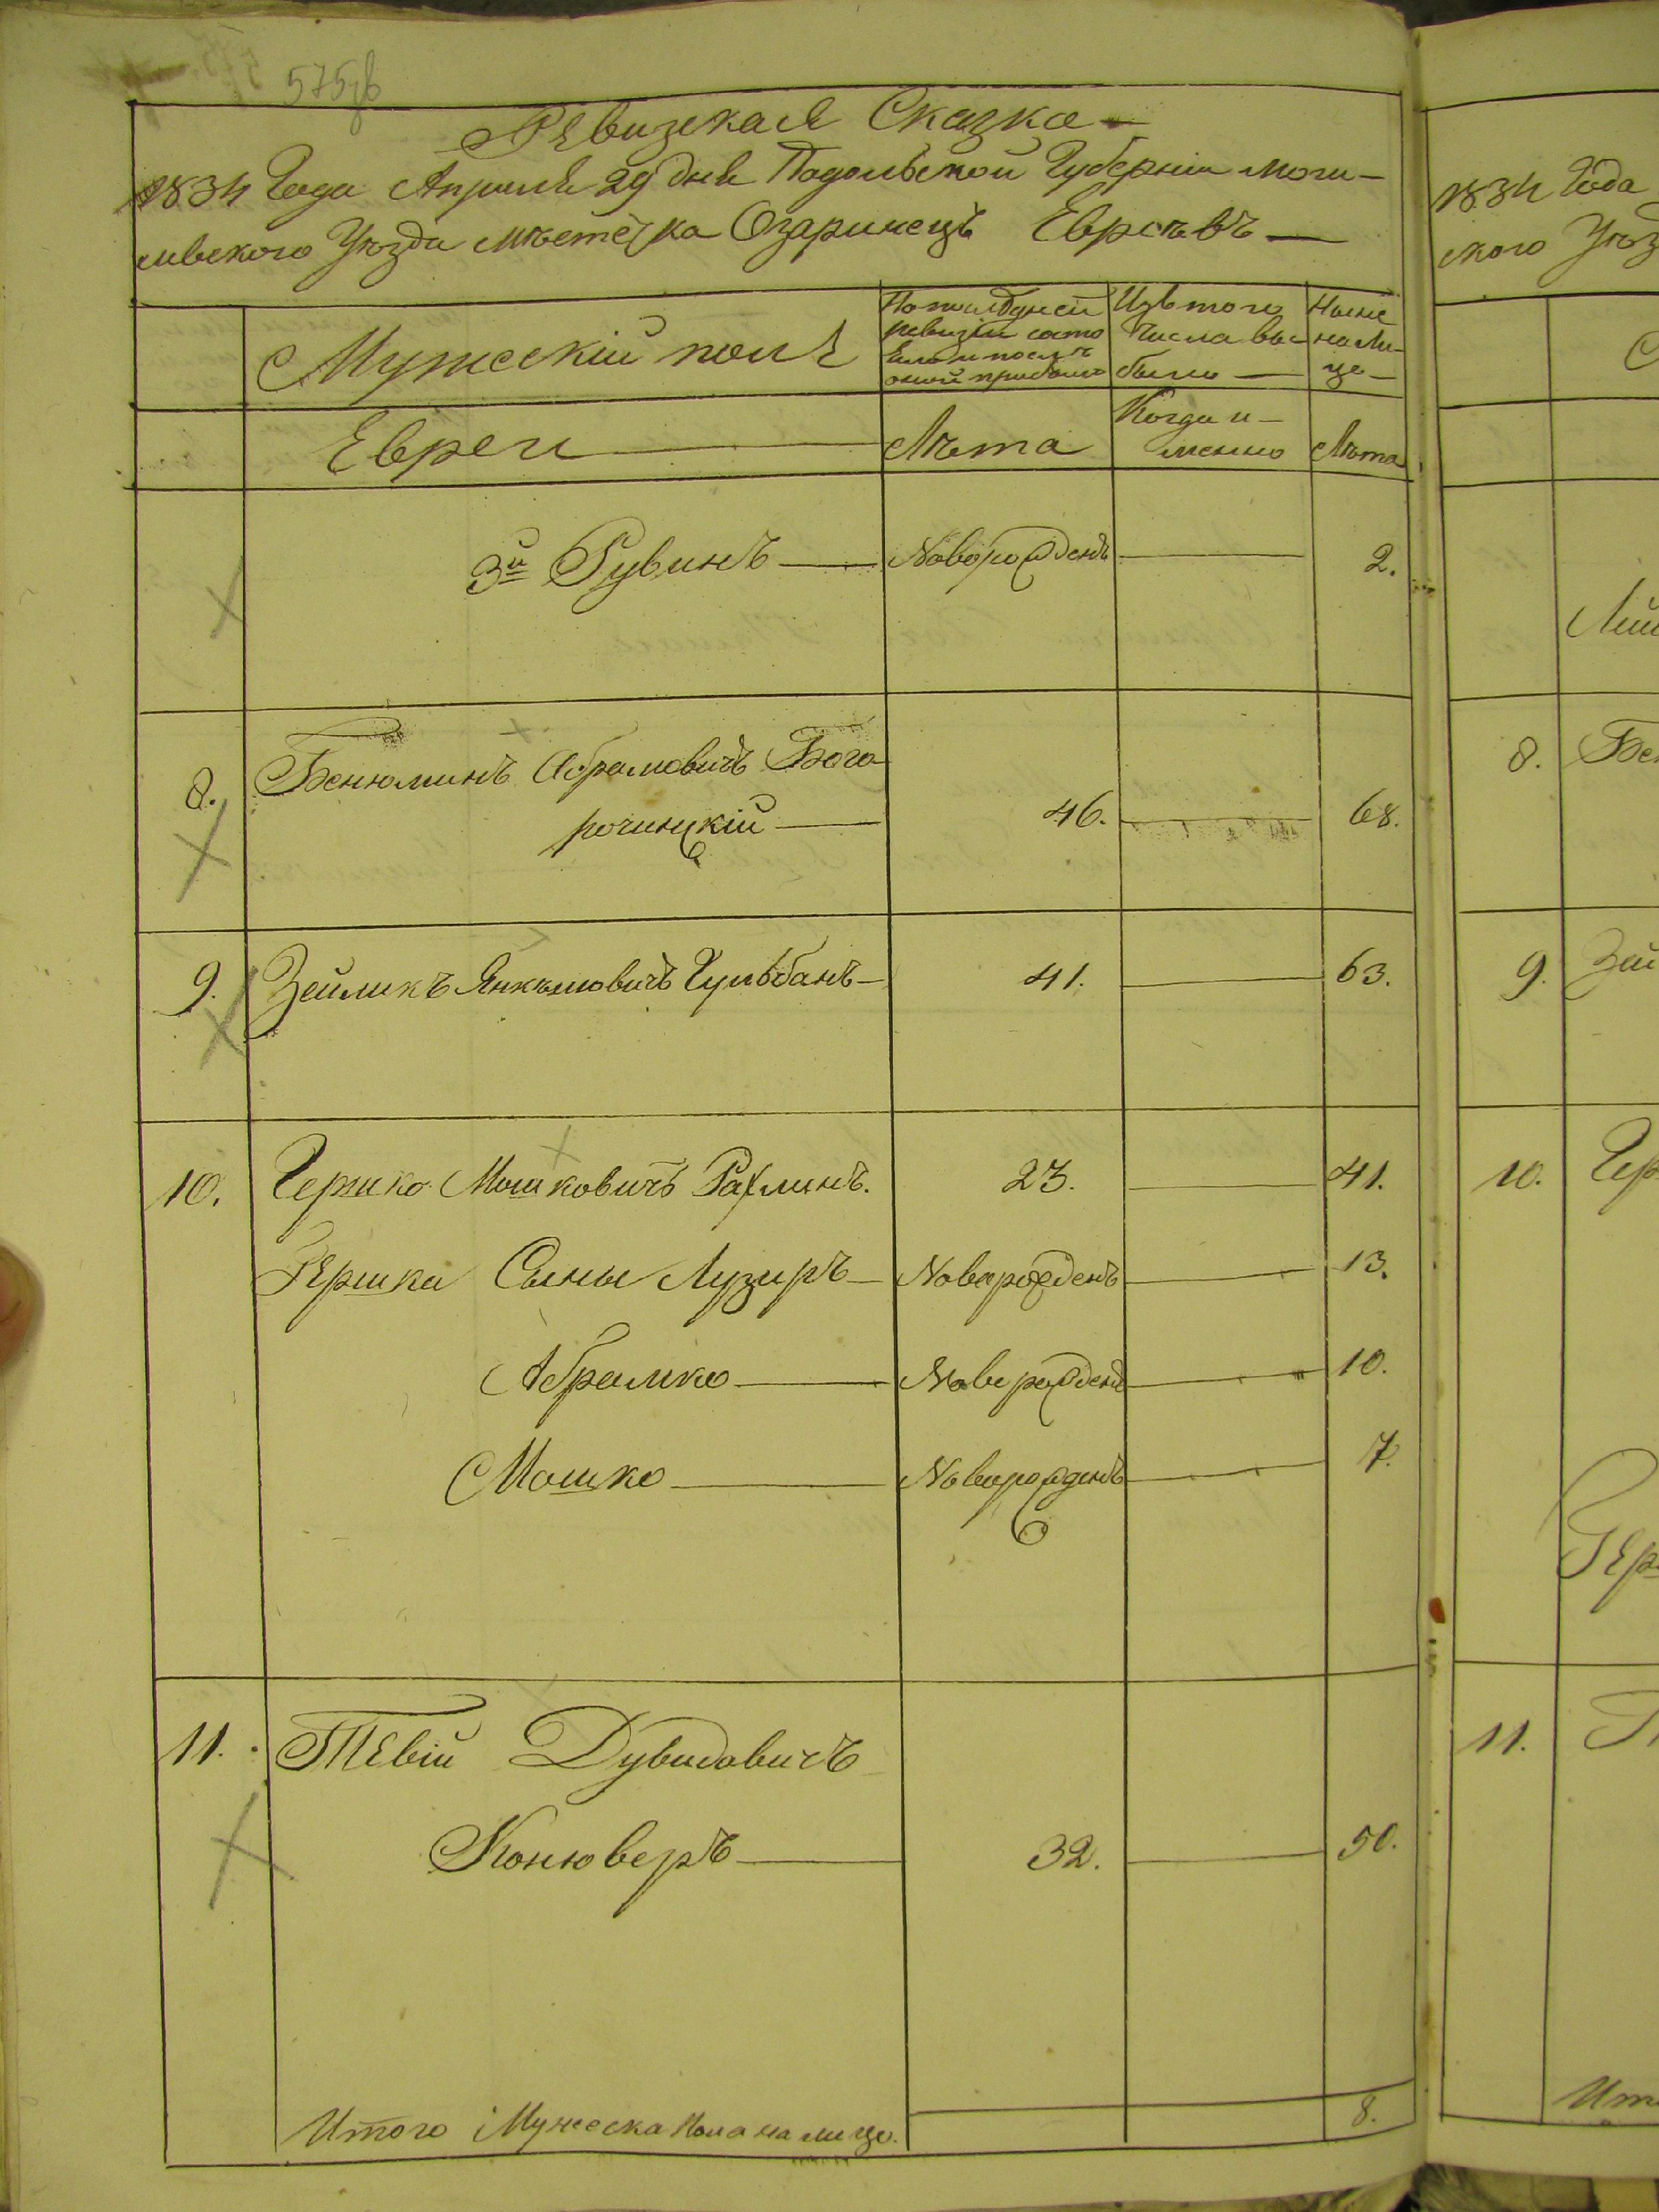 575об
Ревизская Сказка
1834 Года Апреля 29 дня Подольской Губернии Моги-
левского Уезда местечка Озаринецъ Евреевъ
Мужескій полъ
По последней ревизіи состо
яло и после оной прибыло
Изъ того числа вы
было
Ныне на ли-
цо
Евреи
Лѣта
Когда и-
менно
Лѣта
3й Рувинъ Новорожденъ 2.
8. Бенюминъ Абрамовичъ Бого
рочинскій 46. 68.
9. Зейликъ Янкелювичъ Гульбанъ 41. 63.
10. Гершко Мошковичъ Рахлинъ. 23. 41.
Гершка Сыны Лузиръ Новорожденъ 13.
Абрамко Новорожденъ 10.
Мошко Новорожденъ 7.
11. Тевій Дувидовичъ
Конюверъ 32. 50.
Итого Мужеска пола на лицо. 8.
1834 Года
ского Уезд
8.
9. Зей
10. Гер
Гер
11.